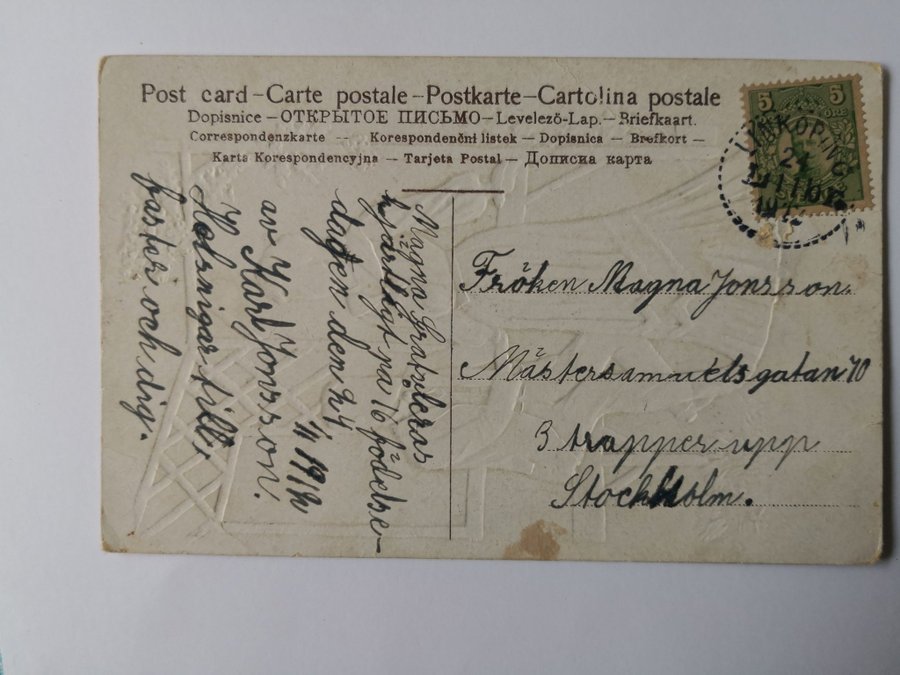 Post card – Carte postale – Postkarte – Cartolina postale
Dopisnice – ОТКРЫТОЕ ПИСЬМО – Levelező-Lap. – Briefkaart.
Correspondenzkarte -- Korespondenční listek – Dopisnica – Brefkort –
Karta Korespondencyjna – Tarjeta Postal – Дописна карта
5 5
ÖRE
LINKÖPING
Magna Gratuleras
hjärtligt på 16 födelse-
dagen den 24
1/1 1912
av Karl Jonsson.
Helsnigar till,
farbror och dig.
Fröken Magna Jonsson.
Mästersamuelsgatan 70
3 trapper upp
Stockholm.